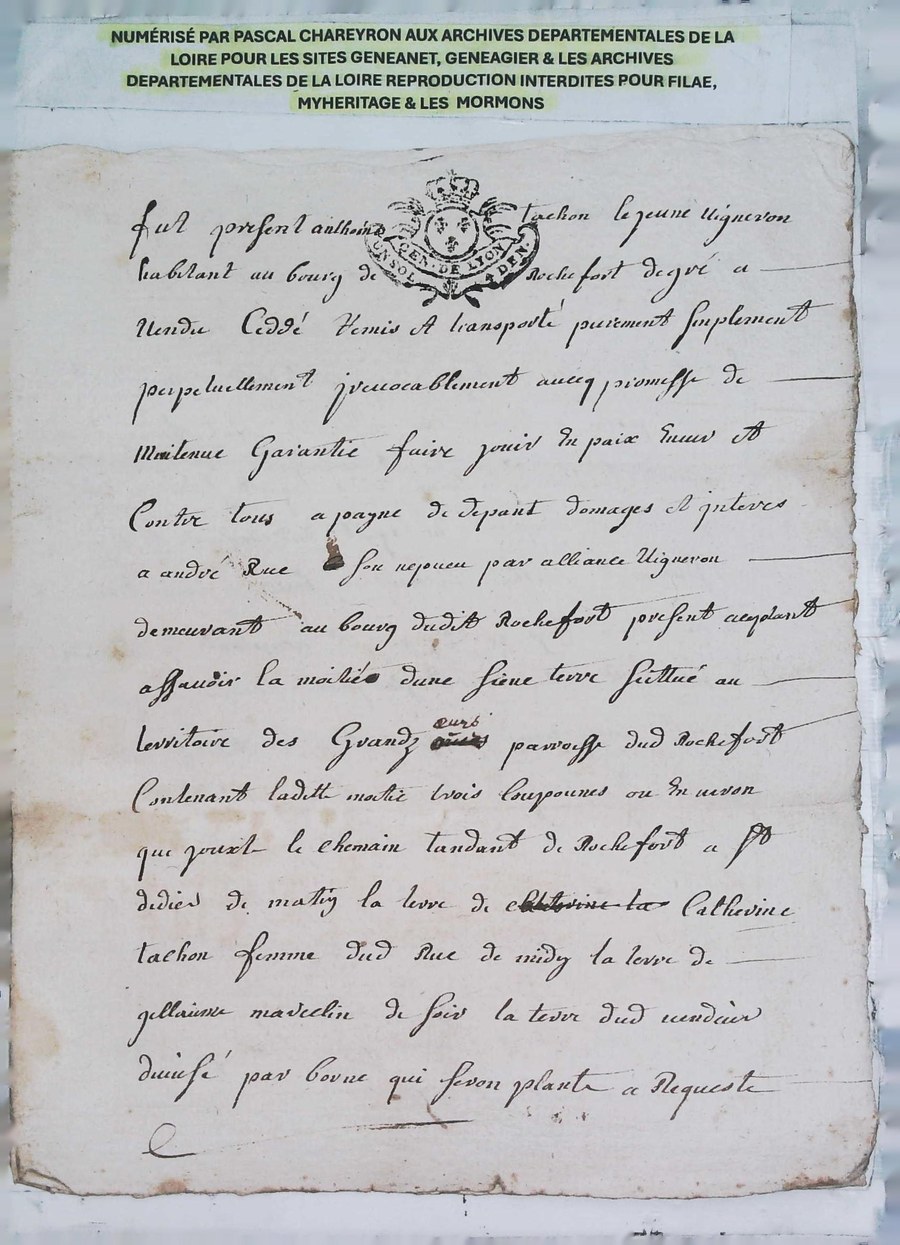 NUMÉRISÉ PAR PASCAL CHAREYRON AUX ARCHIVES DEPARTEMENTALES DE LA
LOIRE POUR LES SITES GENEANET, GENEAGIER & LES ARCHIVES
DEPARTEMENTALES DE LA LOIRE REPRODUCTION INTERDITES POUR FILAE,
MYHERITAGE & LES MORMONS
fut present anthoine tachon le jeune vigneron
GEN. DE LYON
UN SOL 4 DEN.
habitant au bourg de Rochefort de gré a
vendu Ceddé Remis et transporté purement simplement
perpetuellement jrevocablement avecq promesse de
Maitenue Garantie faire jouir En paix Enver et
Contre tous a payne de depant domages et jnteres
a andré Rue son nepveu par alliance vigneron
demeurant au bourg dudit Rochefort present aceptant
assavoir la moitié dune siene terre sittué au
territoire des Grandz parroisse dud Rochefort
Contenant laditte moitié trois Coupounes ou En viron
que jouxt le chemain tandant de Rochefort a st
dedier de matin la terre de Catherine
tachon femme dud Rue de midy la terre de
gillaume marcelin de soir la terre dud vendeur
divisé par borne qui seron plante a Requeste